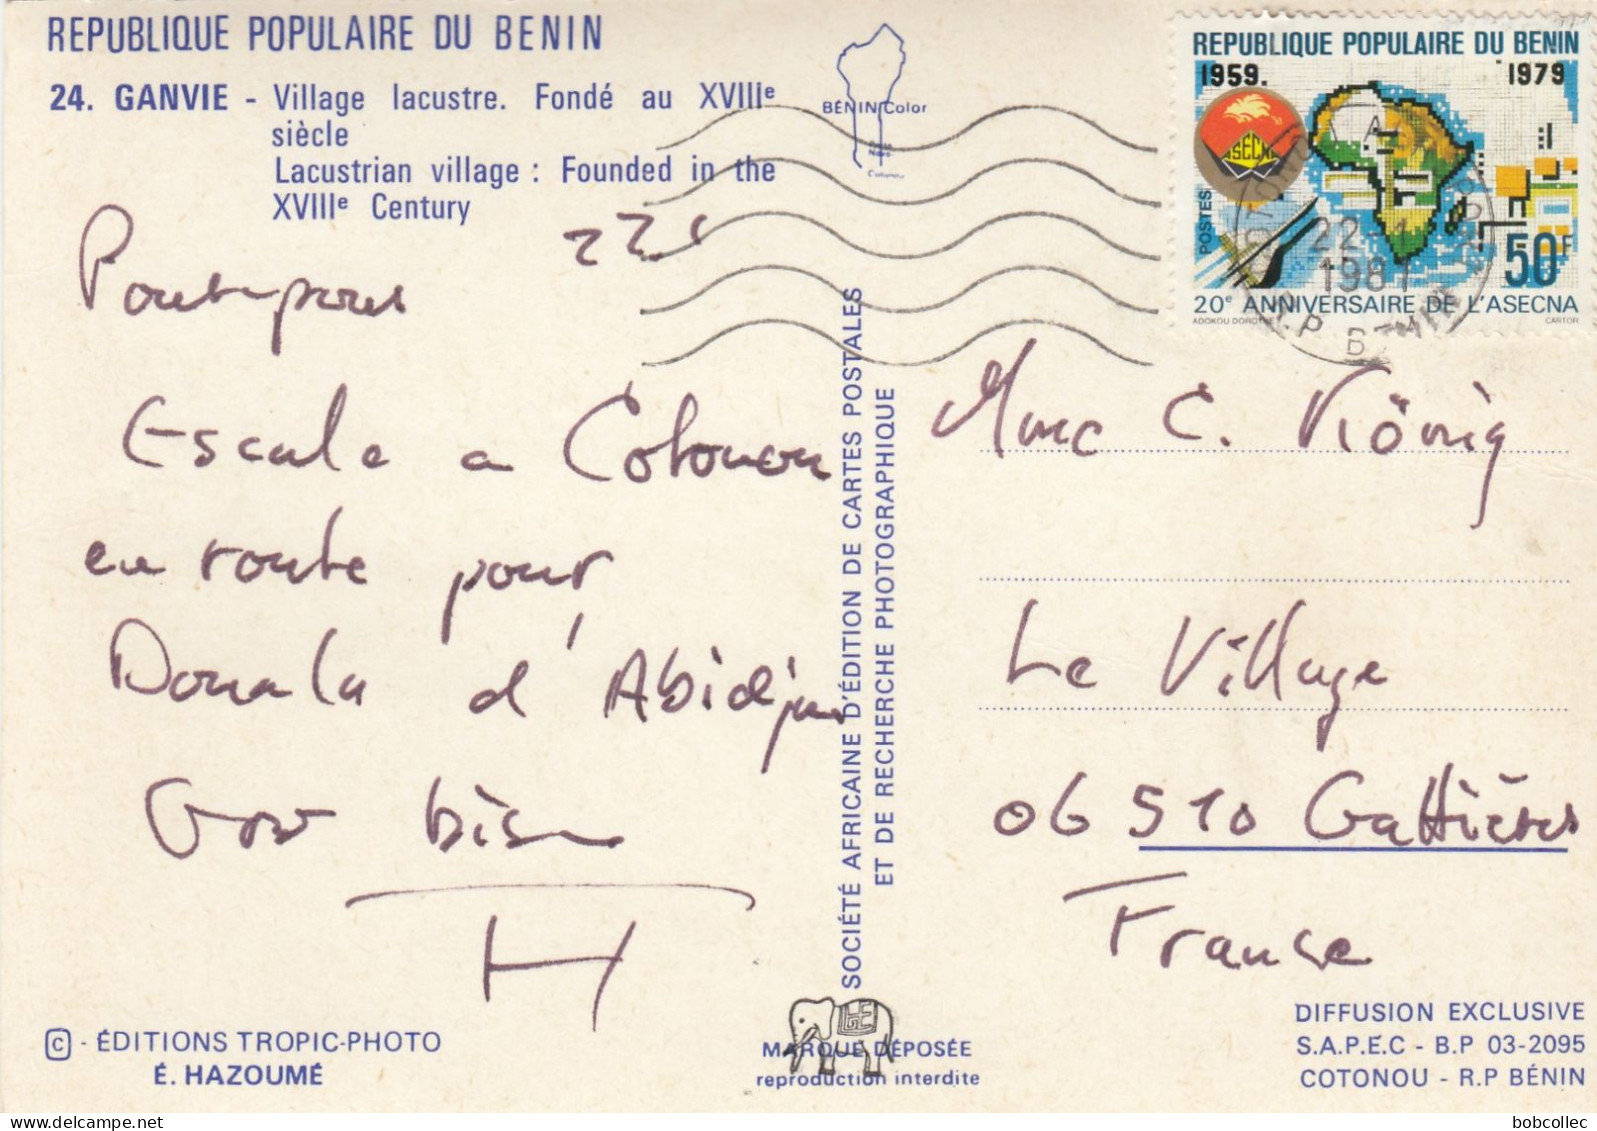 REPUBLIQUE POPULAIRE DU BENIN
24. GANVIE - Village lacustre. Fondé au XVIIIe
siècle
Lacustrian village : Founded in the
XVIIIe Century
BÉNIN Color
Cotonou
REPUBLIQUE POPULAIRE DU BENIN
1959. 1979
ASECNA
POSTES
50F
20e ANNIVERSAIRE DE L'ASECNA
ADOKOU DOROTHE CARTOR
22
1981
R.P BENIN
Escale a Cotonou
en route pour
Douala d'Abidjan
Gros bisou
H
SOCIÉTÉ AFRICAINE D'ÉDITION DE CARTES POSTALES
ET DE RECHERCHE PHOTOGRAPHIQUE
Mme C. König
Le Village
06510 Gattières
France
© - ÉDITIONS TROPIC-PHOTO
É. HAZOUMÉ
MARQUE DÉPOSÉE
reproduction interdite
DIFFUSION EXCLUSIVE
S.A.P.E.C - B.P 03-2095
COTONOU - R.P BÉNIN
bobcollec